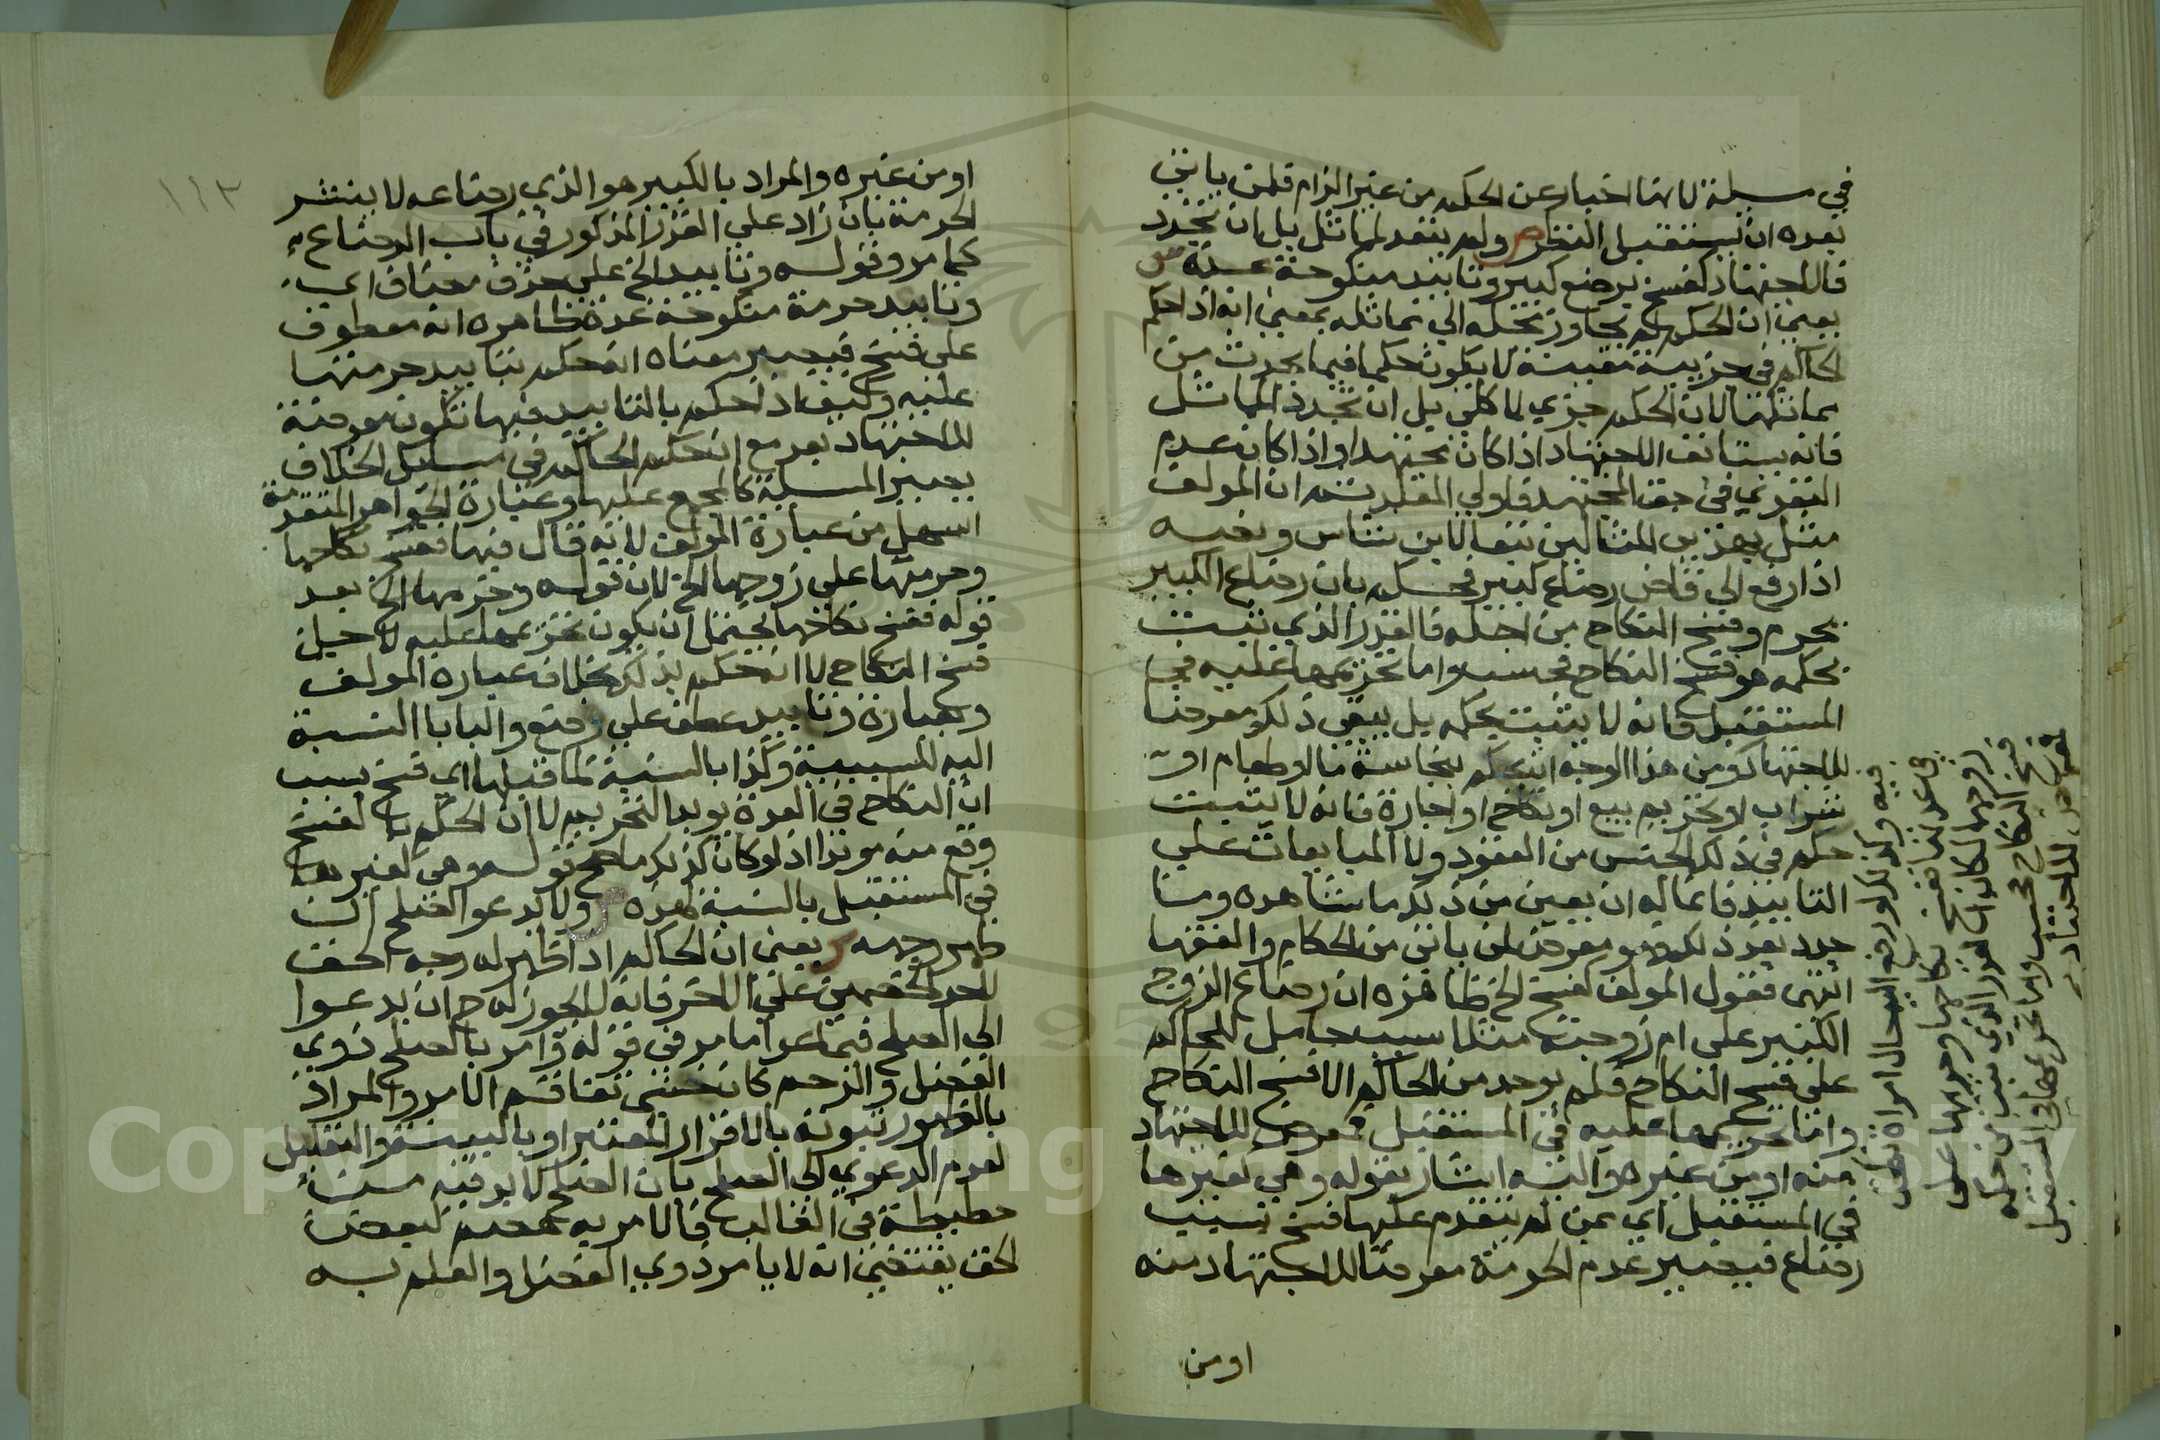 في مسيلة لانها اخبار عن الحكم من غير الزام فلمن ياتي
بعده ان يستقبل النظر ص ولم يتعد لمماثل بل ان تجدد
فالاجتهاد كفسخ برضع كبير وتابيد منكوحة عدة ش
يعني ان الحكم لم يتجاوز محله الي مماثله بمعني انه اذا حكم
الحاكم في جزيية معينة لا يكون حكما فيما يحدث من
مماثلتها لان الحكم جزي لا كلي بل ان تجدد المماثل
فانه يستانف الاجتهاد اذا كان مجتهدا واذا كان عدم
التعدي في حق المجتهد فاولي المقلد ثم ان المولف
مثل بهذين المثالين تبعا لابن شاس ونصه
اذا رفع الي قاض رضاع كبير فحكم بان رضاع الكبير
يحرم وفسخ النكاح من اجله فالقدر الذي يثبت
بحكمه هو فسخ النكاح فحسب واما تحريمها عليه في
المستقبل فانه لا يثبت بحكمه بل يبقي ذلك معرضا
للاجتهاد ومن هذا الوجه ان يحكم بنجاسة ما او طعام او
شراب او تحريم بيع او نكاح او اجارة فانه لا يثبت
حكم في ذلك الجنس من العقود ولا المبايعات علي
التابيد فانما له ان يعين من ذلك ما شاهده وما
جدد بعد ذلك فهو معرض لمن ياتي من الحكام والفقها
انتهى فقول المولف كفسخ الخ ظاهره ان رضاع الزوج
الكبير علي ام زوجته مثلا سبب حامل للحاكم
علي فسخ النكاح فلم يوجد من الحاكم الا فسخ النكاح
واما تحريمها عليه في المستقبل فمعرض للاجتهاد
منه او من غيره واليه اشار بقوله وهي كغيرها
في المستقبل اي ممن لم يتقدم عليها فسخ بسبب
رضاع فيصير عدم الحرمة معرضا للاجتهاد منه
او من
فسخ النكاح فحسب واما تحريمها في المستقبل
١١٣
او من غيره والمراد بالكبير هو الذي رضاعه لا ينشر
الحرمة بان زاد علي القدر المذكور في باب الرضاع
كما مر وقوله وتابيد الخ علي حذف مضاف اي
وتابيد حرمة منكوحة عدة ظاهره انه معطوف
علي فسخ فيصير معناه انه حكم بتابيد حرمتها
عليه وكيف اذا حكم بالتابيد فيها تكون معرضة
للاجتهاد بعد مع ان حكم الحاكم في مسايل الخلاف
يصير المسيلة كالمجمع عليها وعبارة الجواهر المتقدمة
اسهل من عبارة المولف لانه قال فيها ففسخ نكاحها
وحرمتها علي زوجها الخ لان قوله وحرمها الخ بعد
قوله ففسخ نكاحها يحتمل ان يكون تحريمها عليه لاجل
فسخ النكاح لا انه حكم بذلك بخلاف عبارة المولف
وبعبارة وتابيد عطف علي رضع والبا با النسبة
اليه للسببية وكذا بالنسبة لما قبلها اي فسخ بسبب
ان النكاح في العدة يوبد التحريم لا ان الحكم بالفسخ
وقع منه موبدا اذ لو كان كذلك ما صح قوله وهي كغيرها
في المستقبل بالنسبة لهذه ص ولا يدعو الصلح ان
ظهر وجهه ش يعني ان الحاكم اذا ظهر له وجه الحق
لاحد الخصمين علي الاخر فانه لا يجوز له ح ان يدعوا
الي الصلح فيما عدا ما مر في قوله وامر بالصلح ذوي
الفضل والرحم كان خشي تفاقم الامر والمراد
بالظهور ثبوته بالاقرار المعتبر او بالبينة والتعليل
لعدم الدعوي الي الصلح بان الصلح لا بد فيه من
حطيطة في الغالب فالامر به هضم لبعض
الحق يقتضي انه لا يامر ذوي الفضل والعلم به